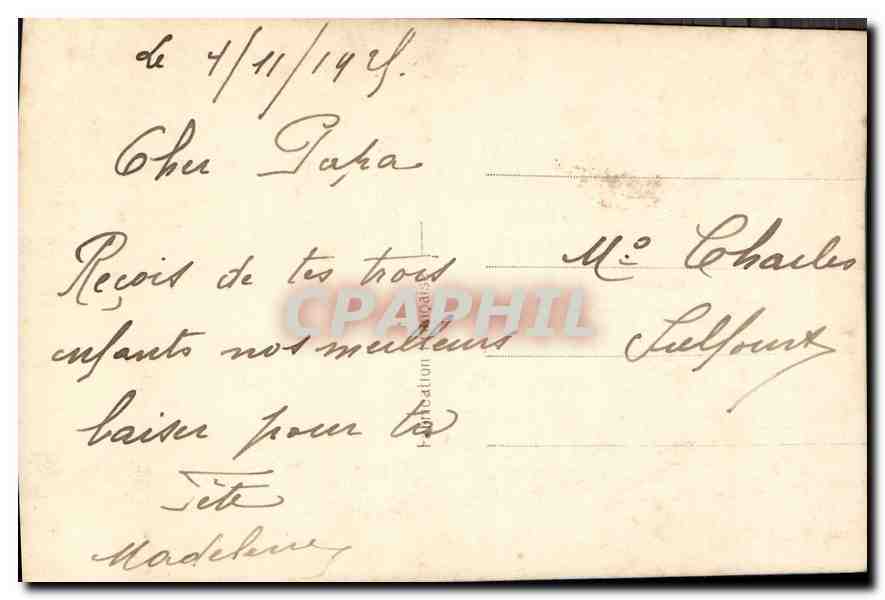 le 4/11/1925.
Cher Papa
Reçois de tes trois
enfants nos meilleurs
baiser pour ta
Fête
Madeleine
Mo Charles
Fabrication Française
CPAPHIL